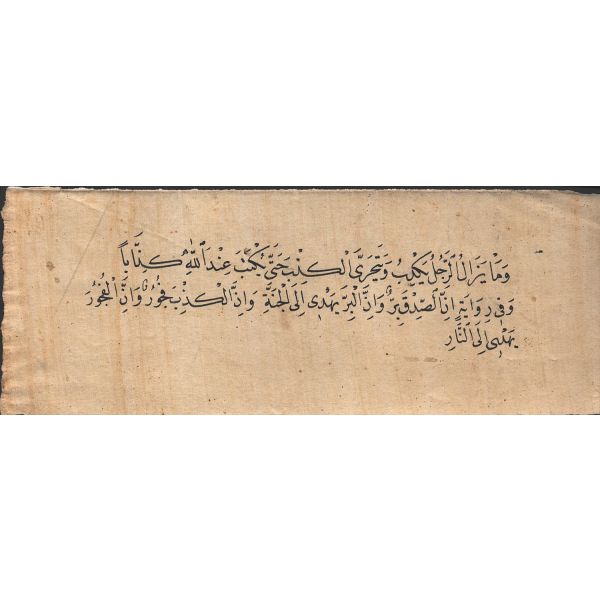 وَمَا يَزَالُ الرَّجُلُ يَكْذِبُ وَيَتَحَرَّى الْكَذِبَ حَتَّى يُكْتَبَ عِنْدَ اللّٰهِ كَذَّابًا
وَفِي رِوَايَةٍ اِنَّ الصِّدْقَ بِرٌّ وَاِنَّ الْبِرَّ يَهْدِي اِلَى الْجَنَّةِ وَاِنَّ الْكَذِبَ فُجُورٌ وَاِنَّ الْفُجُورَ
يَهْدِي اِلَى النَّارِ